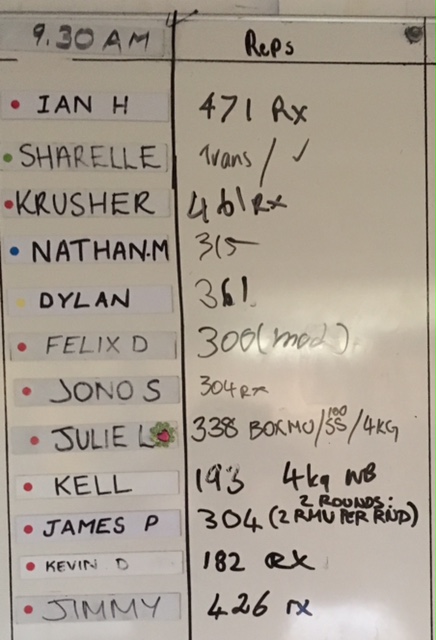 9.30 AM Reps
IAN H 471 Rx
SHARELLE Trans / ✓
KRUSHER 461 Rx
NATHAN.M 315
DYLAN 361
FELIX D 300 (mod)
JONO S 304 Rx
JULIE L 338 BOX MU/100 SS/4KG
KELL 193 4kg WB
JAMES P 304 (2 ROUNDS: 2 RMU PER RND)
KEVIN D 182 RX
JIMMY 426 rx